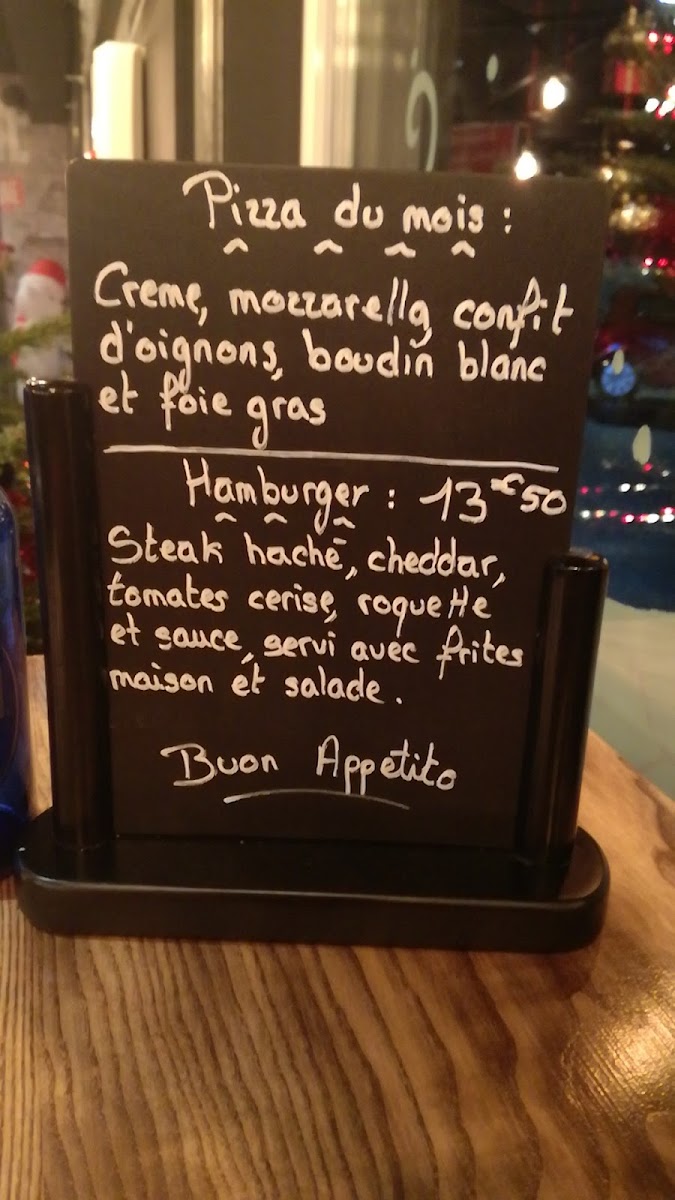 Pizza du mois :
Creme, mozzarella, confit
d'oignons, boudin blanc
et foie gras
Hamburger : 13€50
Steak haché, cheddar,
tomates cerise, roquette
et sauce, servi avec frites
maison et salade.
Buon Appetito